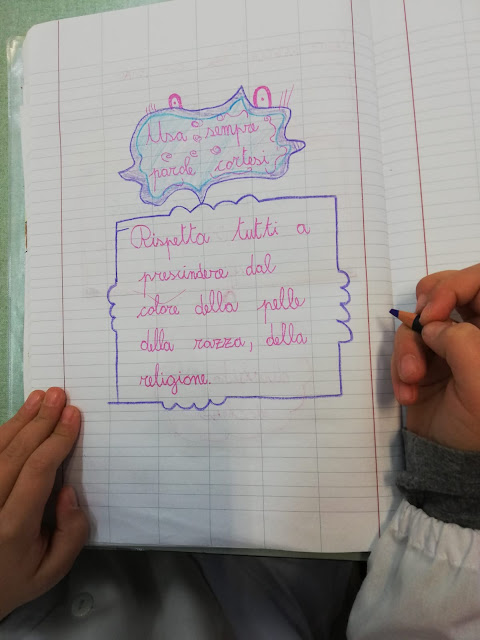 Usa sempre
parole cortesi
Rispetta tutti a
prescindere dal
colore della pelle
della razza, della
religione.